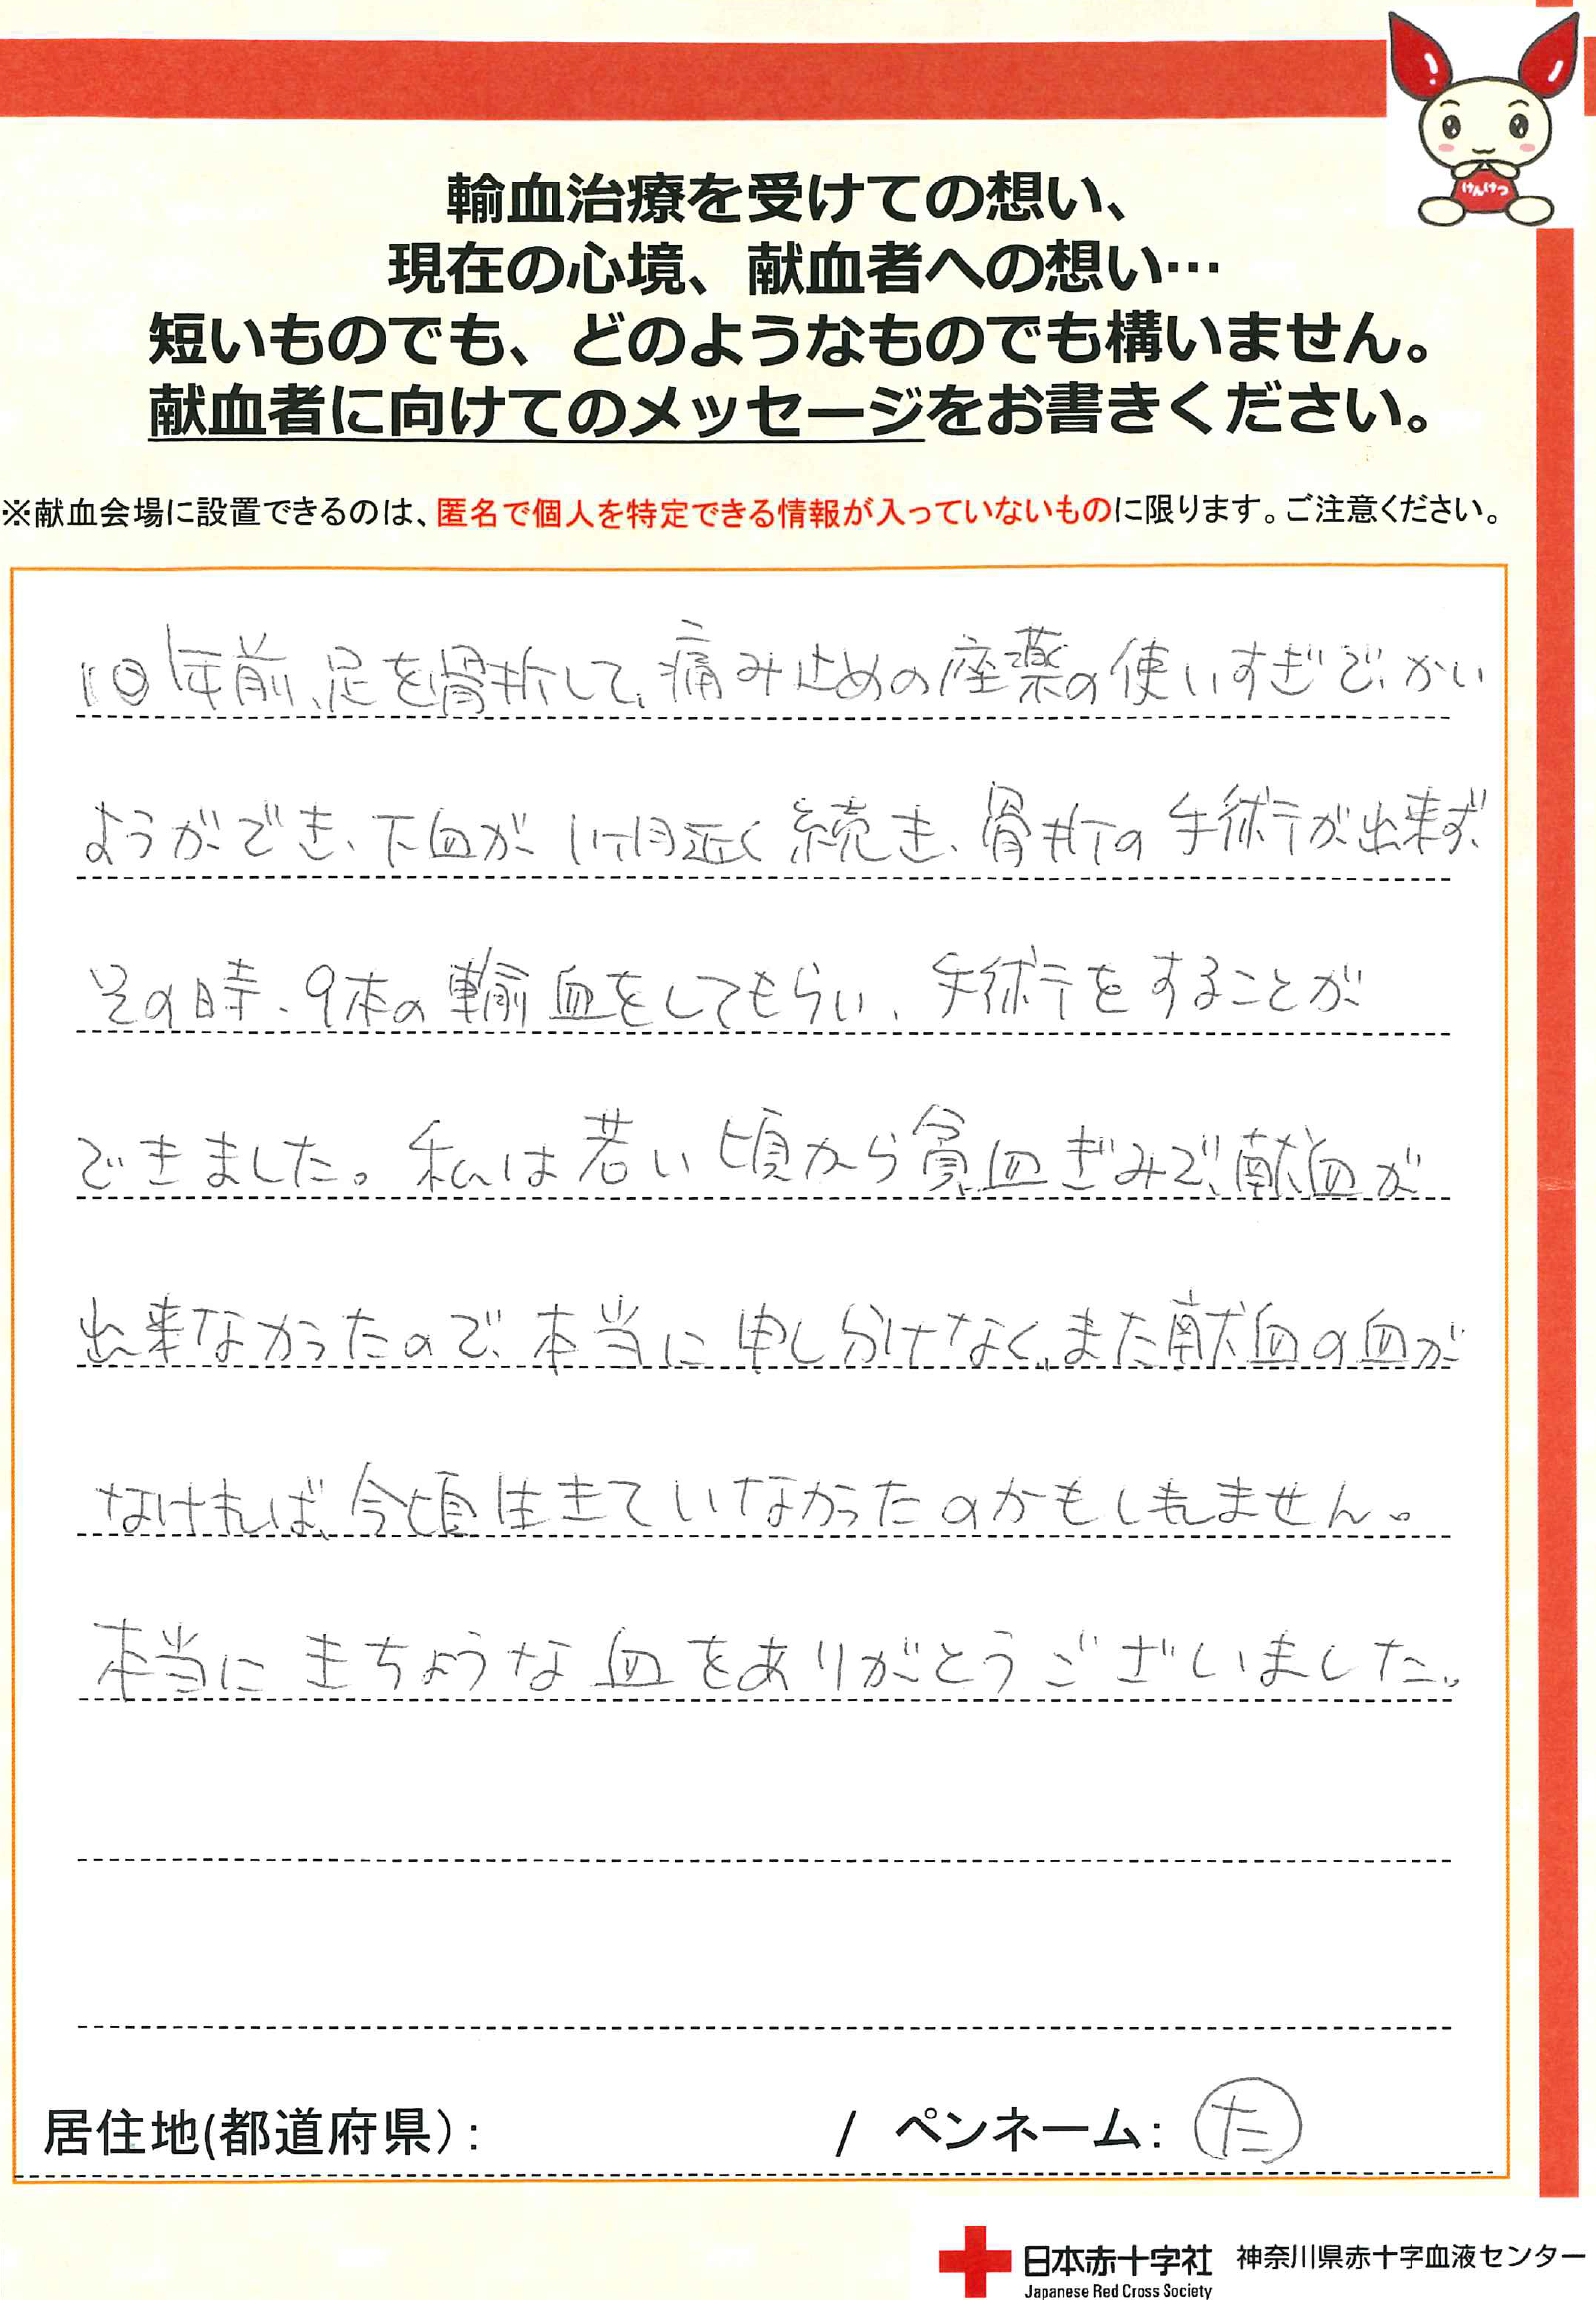 けんけつ
輸血治療を受けての想い、
現在の心境、献血者への想い…
短いものでも、どのようなものでも構いません。
献血者に向けてのメッセージをお書きください。
※献血会場に設置できるのは、匿名で個人を特定できる情報が入っていないものに限ります。ご注意ください。
10年前、足を骨折して、痛み止めの座薬の使いすぎで、かい
ようができ、下血が1ヶ月近く続き、骨折の手術が出来ず、
その時、9本の輸血をしてもらい、手術をすることが
できました。私は若い頃から貧血ぎみで、献血が
出来なかったので、本当に申し分けなく、また献血の血が
なければ、今頃生きていなかったのかもしれません。
本当にきちょうな血をありがとうございました。
居住地(都道府県)： / ペンネーム： た
日本赤十字社 神奈川県赤十字血液センター
Japanese Red Cross Society